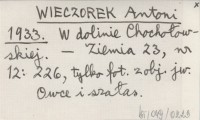 WIECZOREK Antoni
1933. W dolinie Chochołow-
skiej. — Ziemia 23, nr
12: 226, tylko fot. z obj. jw.
Owce i szałas.